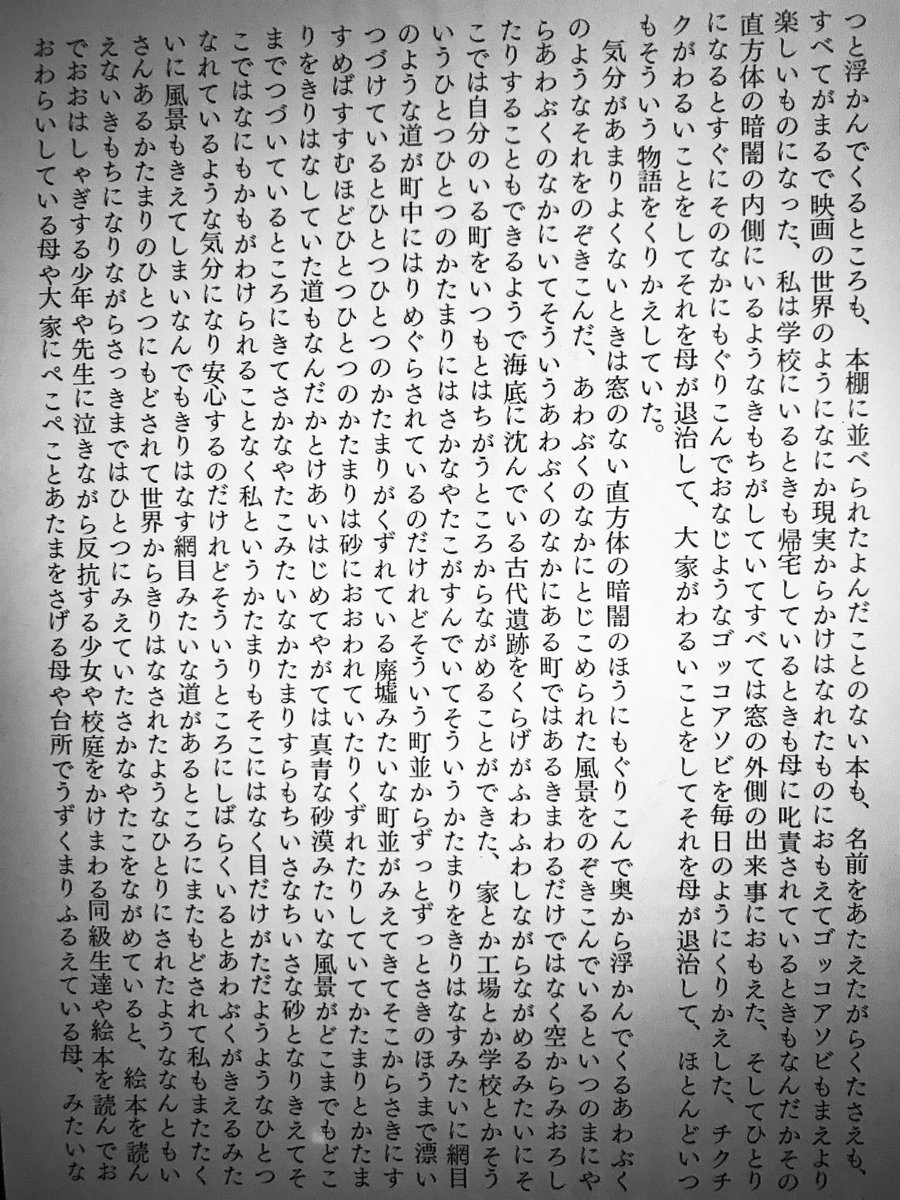 つと浮かんでくるところも、本棚に並べられたよんだことのない本も、名前をあたえたがらくたさえも、
すべてがまるで映画の世界のようになにか現実からかけはなれたものにおもえてゴッコアソビもまえより
楽しいものになった、私は学校にいるときも帰宅しているときも母に叱責されているときもなんだかその
直方体の暗闇の内側にいるようなきもちがしていてすべては窓の外側の出来事におもえた、そしてひとり
になるとすぐにそのなかにもぐりこんでおなじようなゴッコアソビを毎日のようにくりかえした、チクチ
クがわるいことをしてそれを母が退治して、大家がわるいことをしてそれを母が退治して、ほとんどいつ
もそういう物語をくりかえしていた。
気分があまりよくないときは窓のない直方体の暗闇のほうにもぐりこんで奥から浮かんでくるあわぶく
のようなそれをのぞきこんだ、あわぶくのなかにとじこめられた風景をのぞきこんでいるといつのまにや
らあわぶくのなかにいてそういうあわぶくのなかにある町ではあるきまわるだけではなく空からみおろし
たりすることもできるようで海底に沈んでいる古代遺跡をくらげがふわふわしながらながめるみたいにそ
こでは自分のいる町をいつもとはちがうところからながめることができた、家とか工場とか学校とかそう
いうひとつひとつのかたまりにはさかなやたこがすんでいてそういうかたまりをきりはなすみたいに網目
のような道が町中にはりめぐらされているのだけれどそういう町並からずっとずっとさきのほうまで漂い
つづけているとひとつひとつのかたまりがくずれている廃墟みたいな町並がみえてきてそこからさきにす
すめばすすむほどひとつひとつのかたまりは砂におおわれていたりくずれたりしていてかたまりとかたま
りをきりはなしていた道もなんだかとけあいはじめてやがては真青な砂漠みたいな風景がどこまでもどこ
までつづいているところにきてさかなやたこみたいなかたまりすらもちいさなちいさな砂となりきえてそ
こではなにもかもがわけられることなく私というかたまりもそこにはなく目だけがただようようなひとつ
なれているような気分になり安心するのだけれどそういうところにしばらくいるとあわぶくがきえるみた
いに風景もきえてしまいなんでもきりはなす網目みたいな道があるところにまたもどされて私もまたたく
さんあるかたまりのひとつにもどされて世界からきりはなされたようなひとりにされたようななんともい
えないきもちになりながらさっきまではひとつにみえていたさかなやたこをながめていると、絵本を読ん
でおおはしゃぎする少年や先生に泣きながら反抗する少女や校庭をかけまわる同級生達や絵本を読んでお
おわらいしている母や大家にぺこぺことあたまをさげる母や台所でうずくまりふるえている母、みたいな